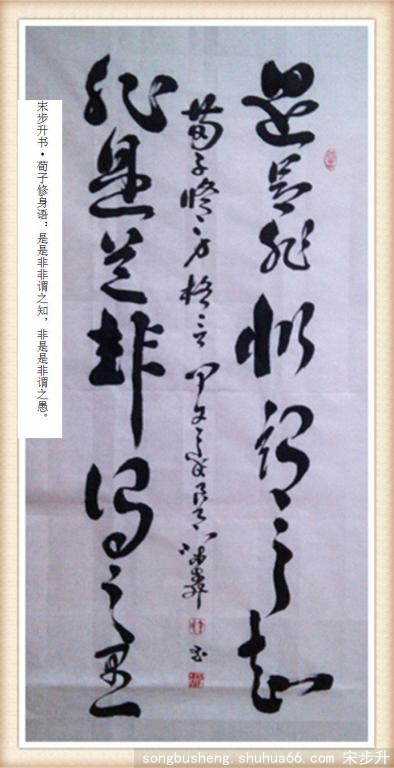 是是非非謂之知
荀子修身格言
非是是非謂之愚
宋步升书•荀子修身语：是是非非谓之知，非是是非谓之愚。
songbusheng.shuhua66.com 宋步升